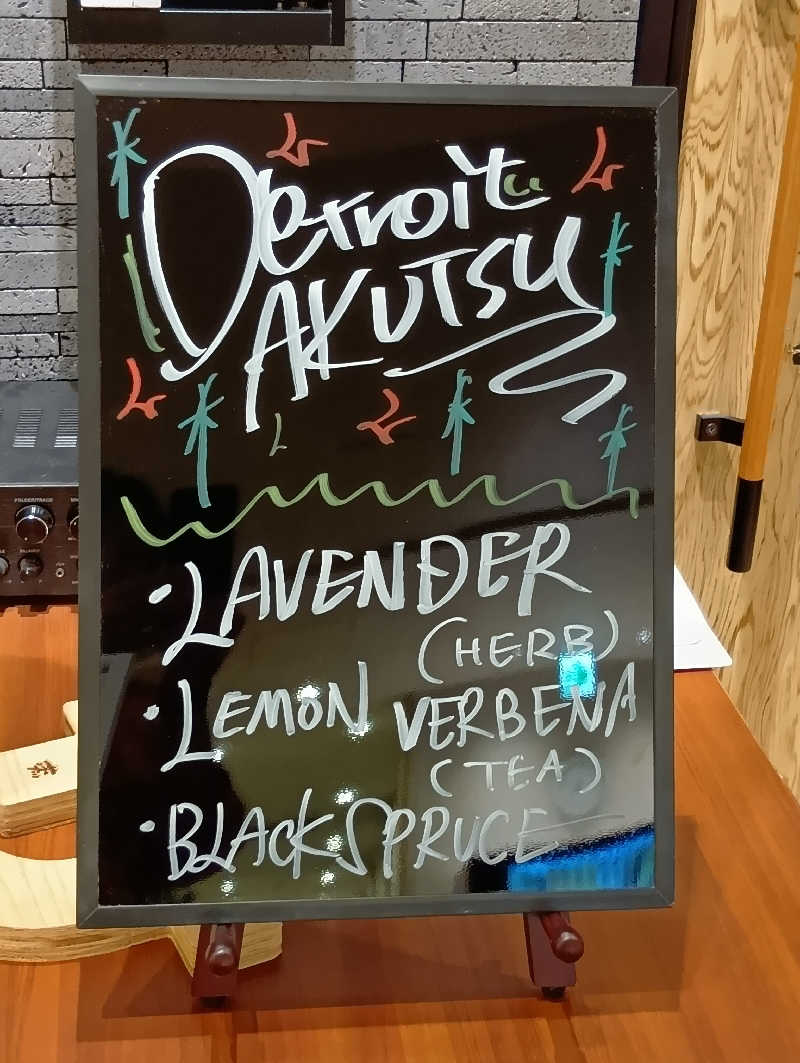 Detroit
AKUTSU
・LAVENDER
(HERB)
・LEMON VERBENA
(TEA)
・BLACK SPRUCE